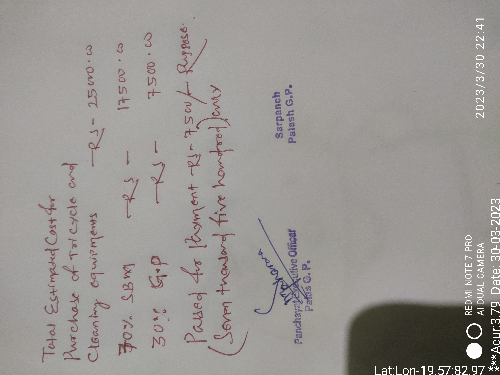 Total Estimated Cost for
Purchase of Tri cycle and
Cleaning equipments - RS - 25000.00
70% SBM - RS - 17500.00
30% G.P - RS - 7500.00
Passed for Payment RS- 7500/- Rupees.
(Seven thousand five hundred) only
Panchayat Executive Officer
G.P.
Sarpanch
Palash G.P.
2023/3/30 22:41
REDMI NOTE 7 PRO
AI DUAL CAMERA
Lat:Lon-19.57:82.97
***Acur:3.79 Date: 30-03-2023